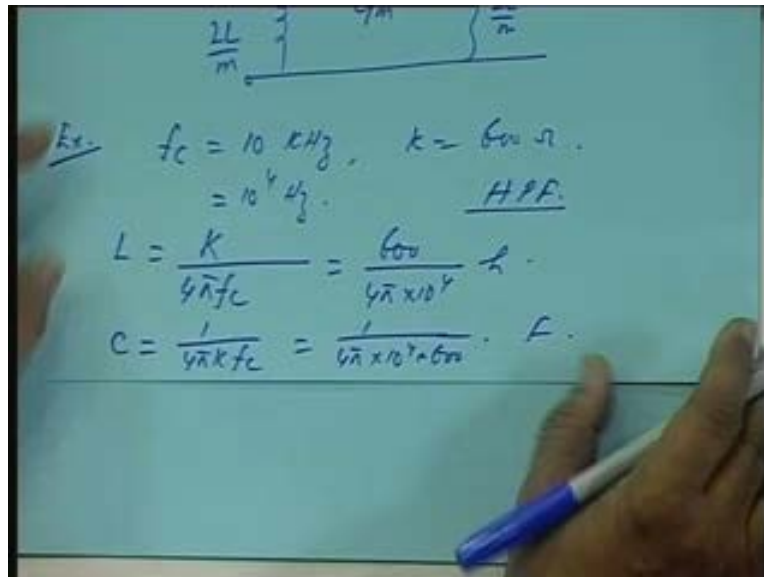 2L/m
Ex. fc = 10 KHz, K = 600 Ω.
= 10⁴ Hz. HPF.
L = K/4πfc = 600/4π×10⁴ h.
C = 1/4πKfc = 1/4π×10⁴×600 . F.